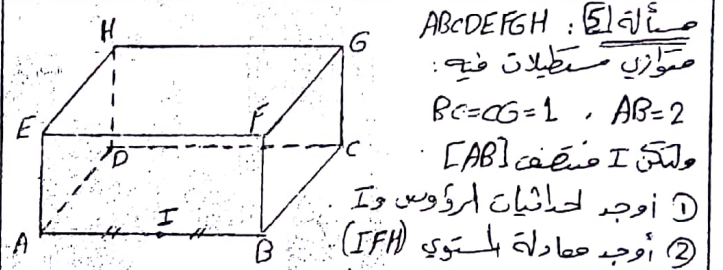 مسألة 5 : ABCDEFGH
متوازي مستطيلات فيه :
AB=2 ، BC=CG=1
ولتكن I منتصف [AB]
① أوجد احداثيات الرؤوس و I
② أوجد معادلة المستوي (IFH)
H
G
E
F
D
C
A
I
B